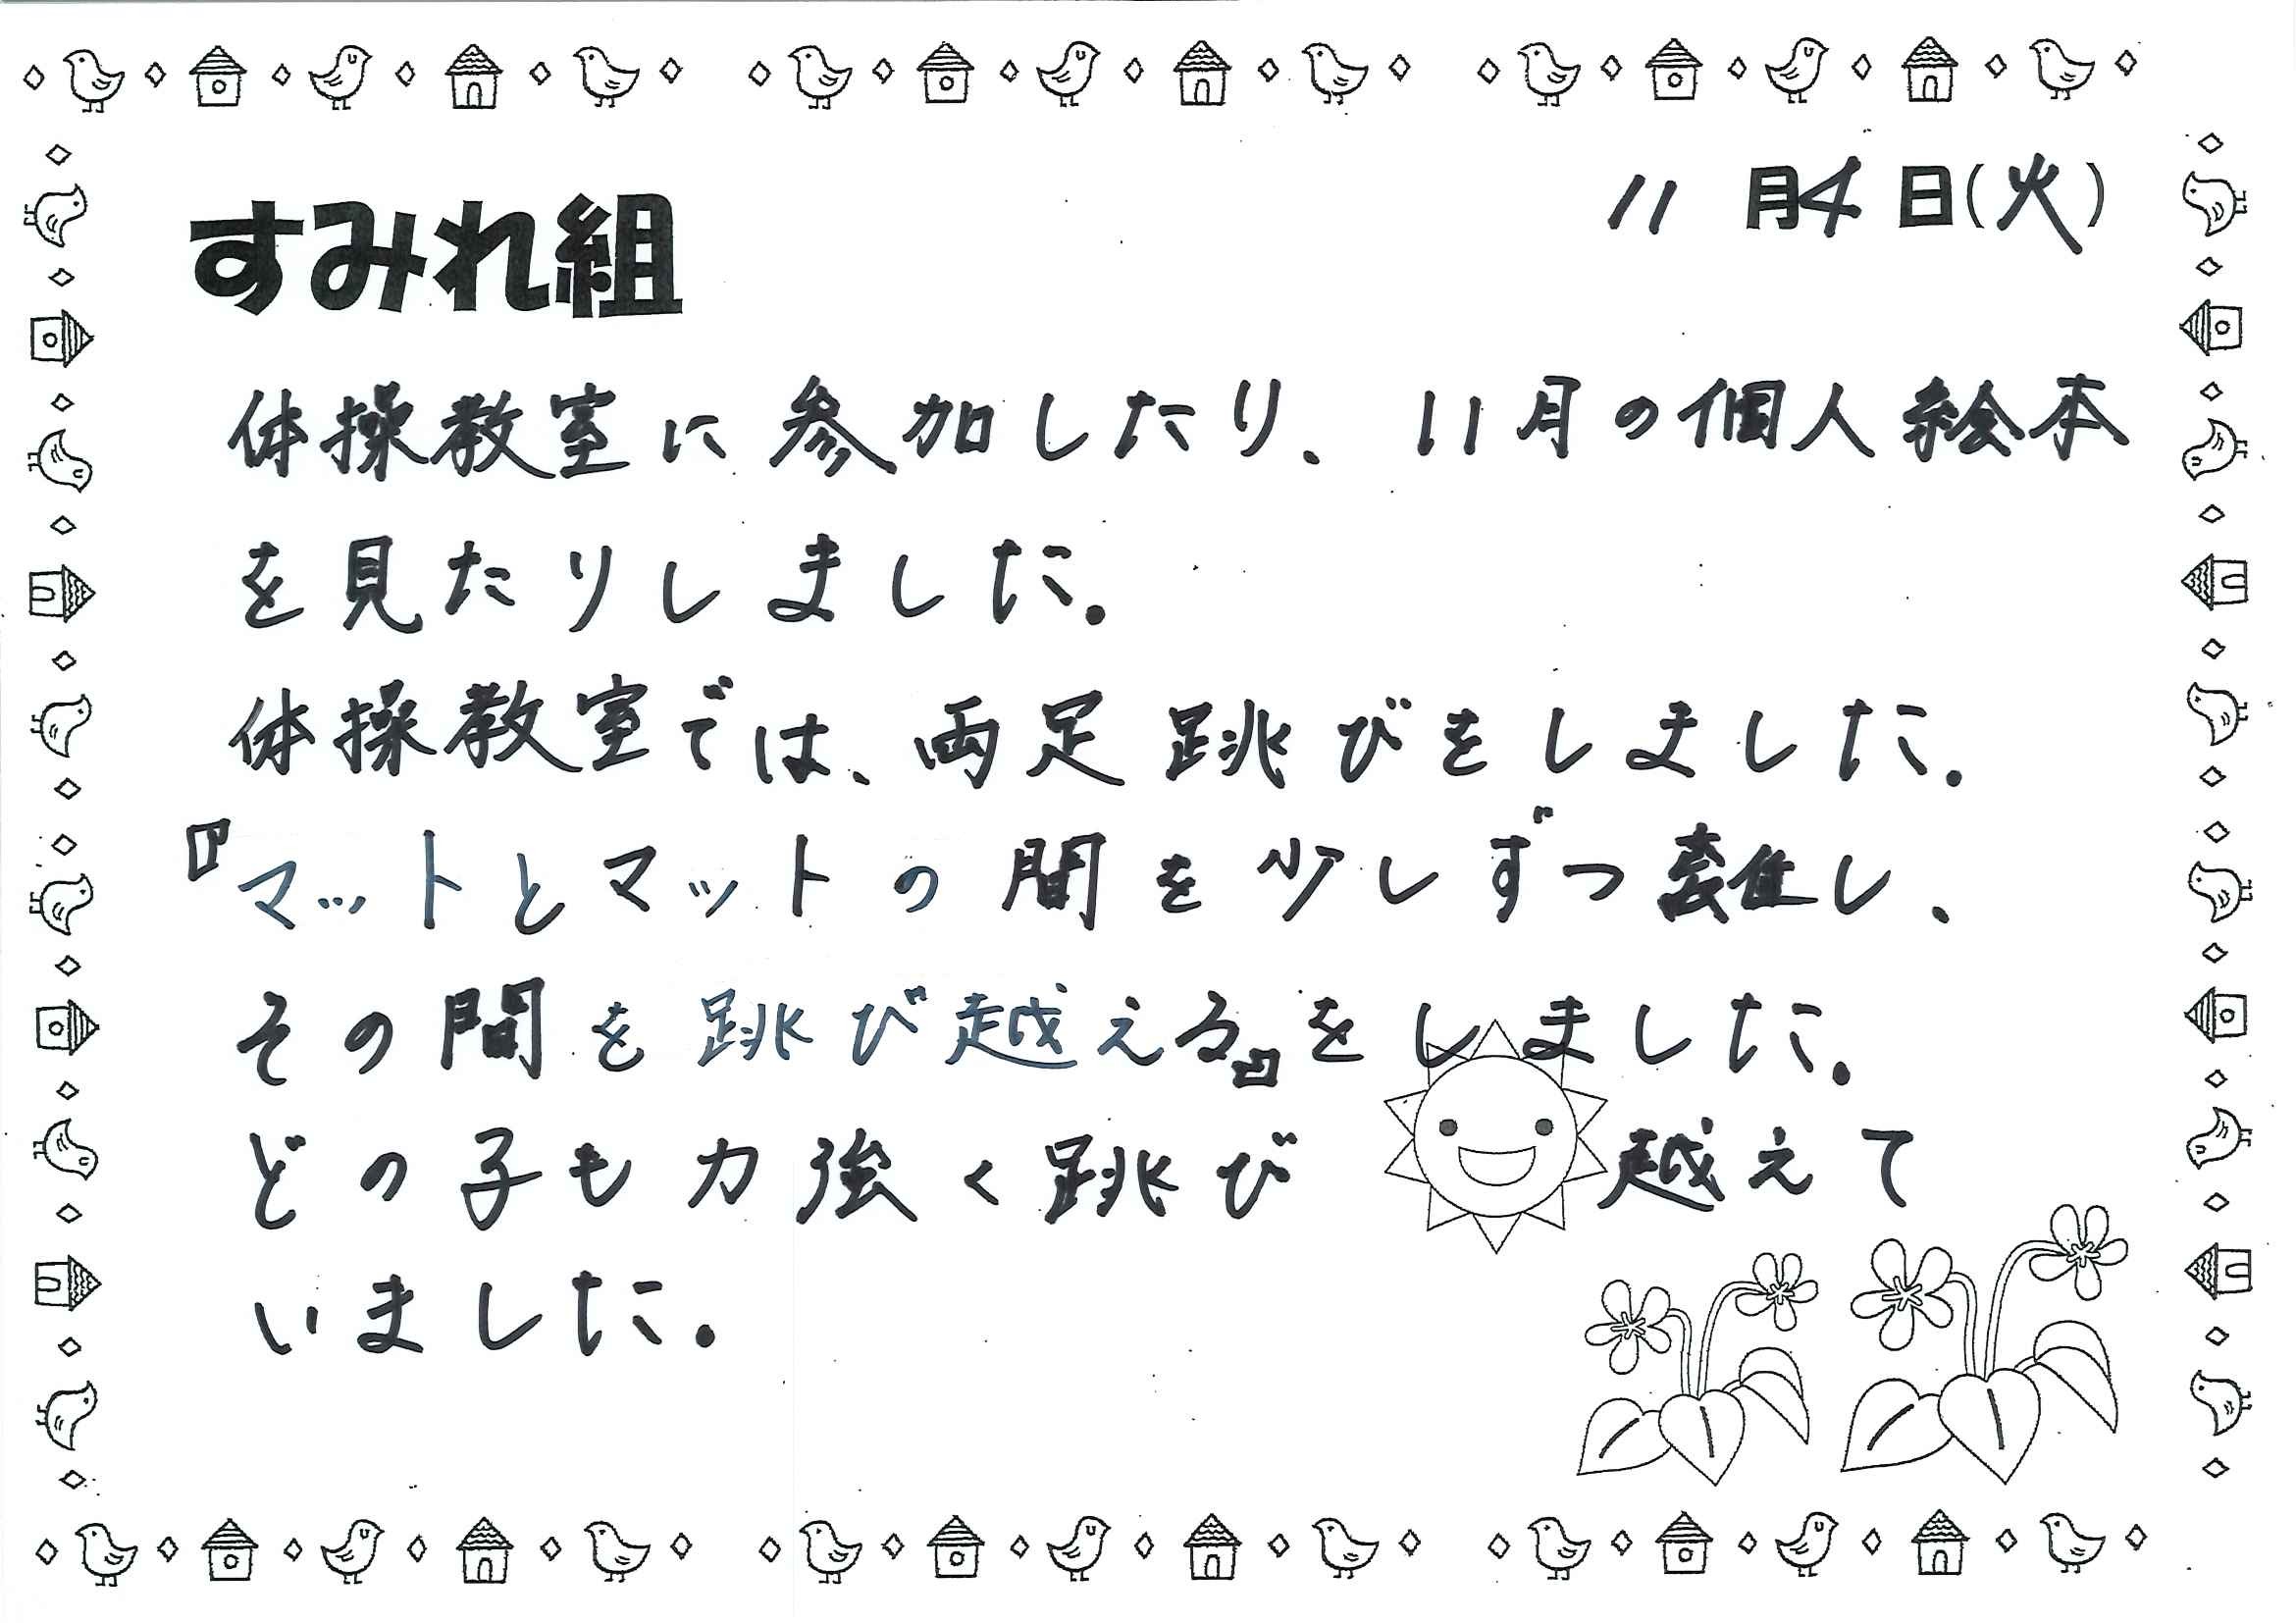 11月4日(火)
すみれ組
体操教室に参加したり、11月の個人絵本
を見たりしました。
体操教室では、両足跳びをしました。
『マットとマットの間を少しずつ離し、
その間を跳び越える』をしました。
どの子も力強く跳び越えて
いました。